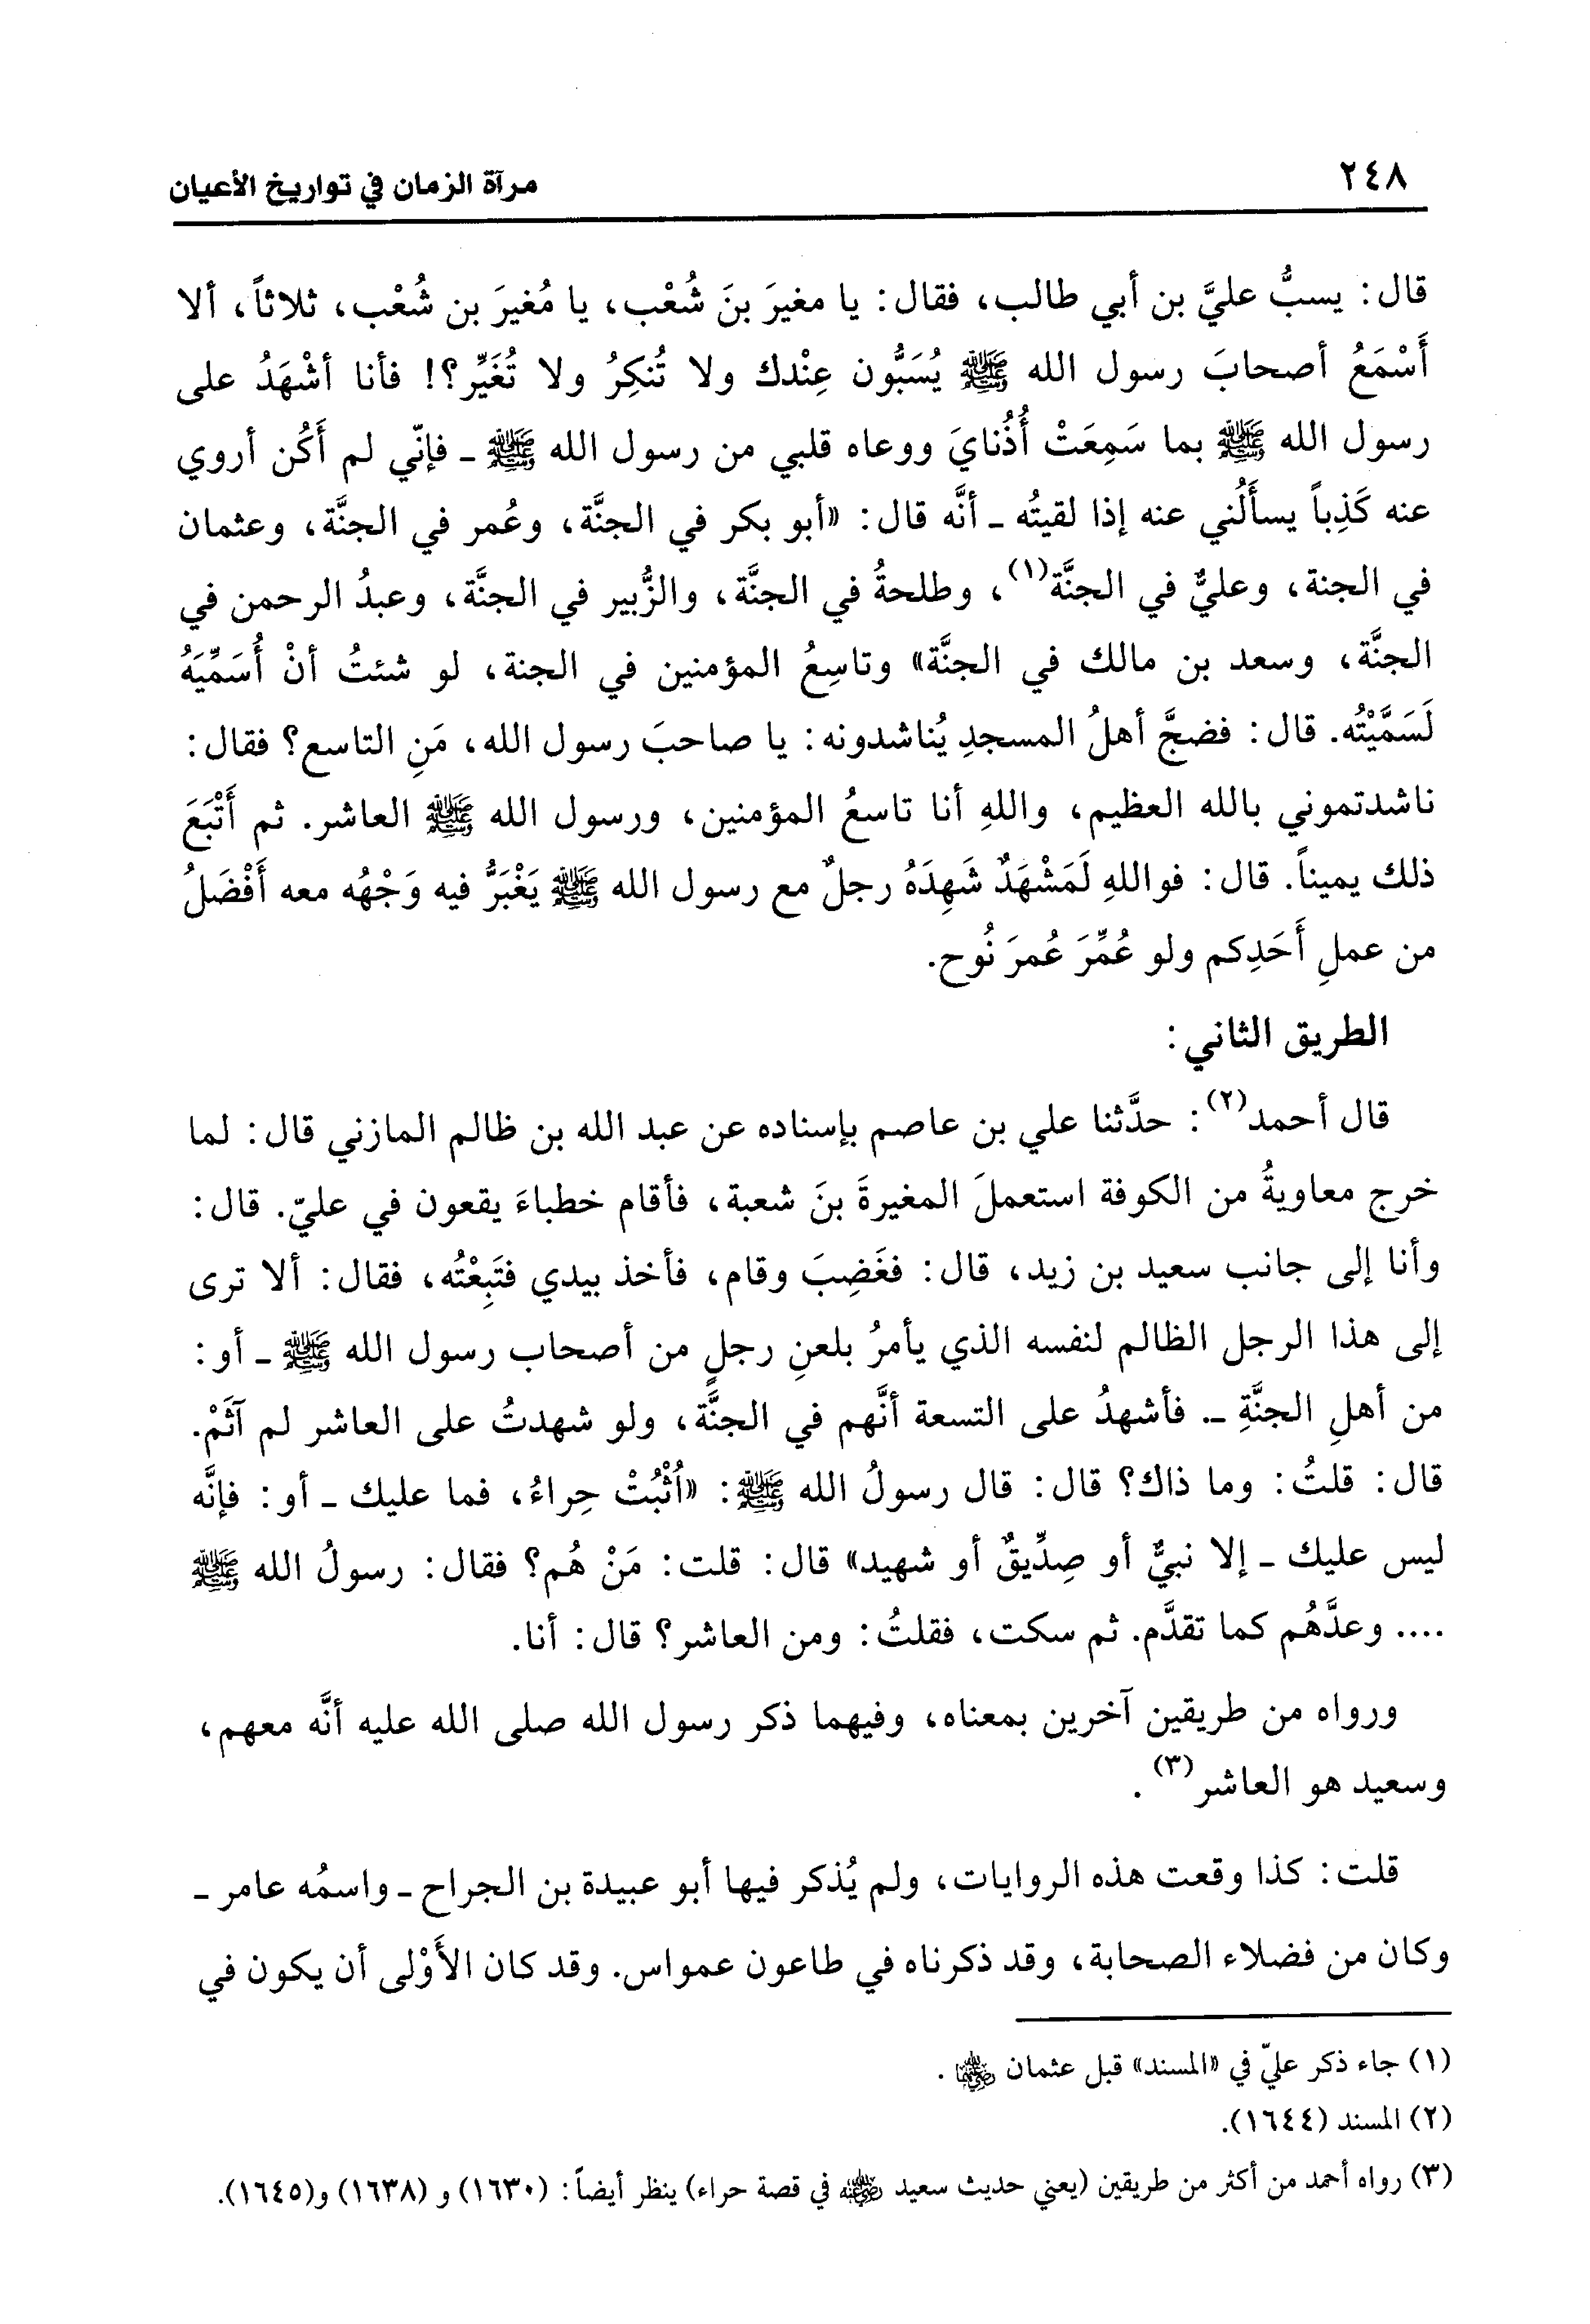 ٢٤٨
مرآة الزمان في تواريخ الأعيان
قال: يسبُّ عليَّ بن أبي طالب، فقال: يا مغيرَ بنَ شُعْب، يا مُغيرَ بن شُعْب، ثلاثاً، ألا
أَسْمَعُ أصحابَ رسول الله ﷺ يُسَبُّون عِنْدك ولا تُنكِرُ ولا تُغَيِّر؟! فأنا أشْهَدُ على
رسول الله ﷺ بما سَمِعَتْ أُذُنايَ ووعاه قلبي من رسول الله ﷺ ـ فإنّي لم أَكُن أروي
عنه كَذِباً يسأَلُني عنه إذا لقيتُه ـ أنَّه قال: «أبو بكر في الجنَّة، وعُمر في الجنَّة، وعثمان
في الجنة، وعليٌّ في الجنَّة(١)، وطلحةُ في الجنَّة، والزُّبير في الجنَّة، وعبدُ الرحمن في
الجنَّة، وسعد بن مالك في الجنَّة» وتاسِعُ المؤمنين في الجنة، لو شئتُ أنْ أُسَمِّيَهُ
لَسَمَّيْتُه. قال: فضجَّ أهلُ المسجدِ يُناشدونه: يا صاحبَ رسول الله، مَنِ التاسع؟ فقال:
ناشدتموني بالله العظيم، واللهِ أنا تاسعُ المؤمنين، ورسول الله ﷺ العاشر. ثم أَتْبَعَ
ذلك يميناً. قال: فواللهِ لَمَشْهَدٌ شَهِدَهُ رجلٌ مع رسول الله ﷺ يَغْبَرُّ فيه وَجْهُه معه أَفْضَلُ
من عملِ أَحَدِكم ولو عُمِّرَ عُمرَ نُوح.
الطريق الثاني:
قال أحمد(٢): حدَّثنا علي بن عاصم بإسناده عن عبد الله بن ظالم المازني قال: لما
خرج معاويةُ من الكوفة استعملَ المغيرةَ بنَ شعبة، فأقام خطباءَ يقعون في عليّ. قال:
وأنا إلى جانب سعيد بن زيد، قال: فغَضِبَ وقام، فأخذ بيدي فتَبِعْتُه، فقال: ألا ترى
إلى هذا الرجل الظالم لنفسه الذي يأمرُ بلعنِ رجلٍ من أصحاب رسول الله ﷺ ـ أو:
من أهلِ الجنَّةِ ـ. فأشهدُ على التسعة أنَّهم في الجنَّة، ولو شهدتُ على العاشر لم آثَمْ.
قال: قلتُ: وما ذاك؟ قال: قال رسولُ الله ﷺ: «اُثْبُتْ حِراءُ، فما عليك ـ أو: فإنَّه
ليس عليك ـ إلا نبيٌّ أو صِدِّيقٌ أو شهيد» قال: قلت: مَنْ هُم؟ فقال: رسولُ الله ﷺ
.... وعدَّهُم كما تقدَّم. ثم سكت، فقلتُ: ومن العاشر؟ قال: أنا.
ورواه من طريقين آخرين بمعناه، وفيهما ذكر رسول الله صلى الله عليه أنَّه معهم،
وسعيد هو العاشر(٣).
قلت: كذا وقعت هذه الروايات، ولم يُذكر فيها أبو عبيدة بن الجراح ـ واسمُه عامر ـ
وكان من فضلاء الصحابة، وقد ذكرناه في طاعون عمواس. وقد كان الأَوْلى أن يكون في
(١) جاء ذكر عليّ في «المسند» قبل عثمان رضي الله عنهما.
(٢) المسند (١٦٤٤).
(٣) رواه أحمد من أكثر من طريقين (يعني حديث سعيد رضي الله عنه في قصة حراء) ينظر أيضاً: (١٦٣٠) و (١٦٣٨) و(١٦٤٥).